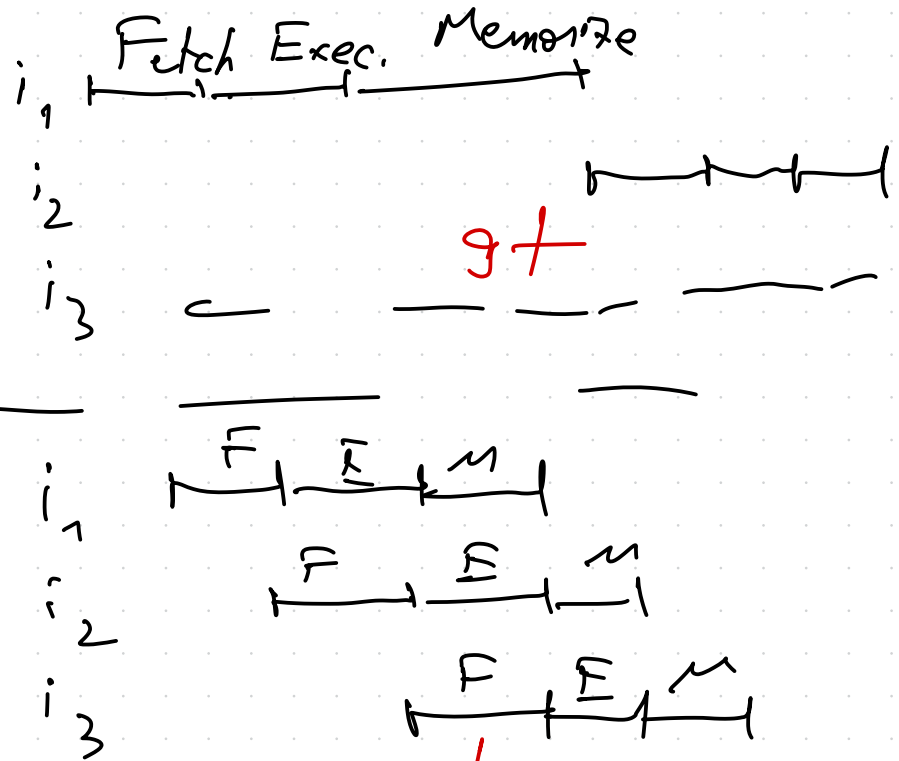 Fetch Exec. Memorize
i1
i2
9t
i3
F E M
i1
F E M
i2
F E M
i3